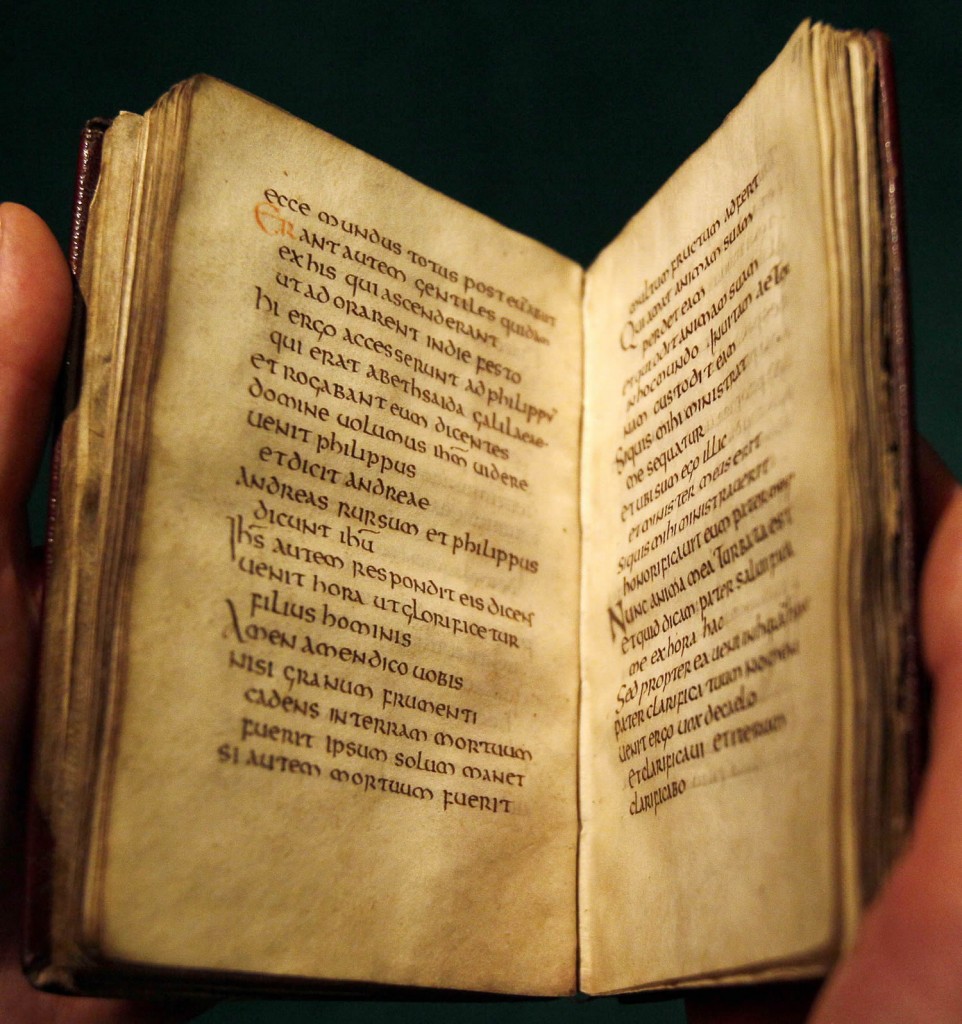 ecce mundus totus post eum abiit
Erant autem gentiles quidam
ex his qui ascenderant
ut adorarent in die festo
hi ergo accesserunt ad philippū
qui erat a bethsaida galilaeae
et rogabant eum dicentes
domine uolumus ihm̄ uidere
uenit philippus
et dicit andreae
andreas rursum et philippus
dicunt ihū
Ihs̄ autem respondit eis dicens
uenit hora ut glorificetur
filius hominis
Amen amen dico uobis
nisi granum frumenti
cadens in terram mortuum
fuerit ipsum solum manet
si autem mortuum fuerit
multum fructum adfert
Qui amat animam suam
perdet eam
et qui odit animam suam
in hoc mundo in uitam aeter
nam custodit eam
Siquis mihi ministrat
me sequatur
et ubi sum ego illic
et minister meus erit
Siquis mihi ministrauerit
honorificauit eum pater meus
Nunc anima mea turbata est
et quid dicam pater saluifica
me ex hora hac
Sed propterea ueni in horam
pater clarifica tuum nomen
uenit ergo uox de caelo
et clarificaui et iterum
clarificabo